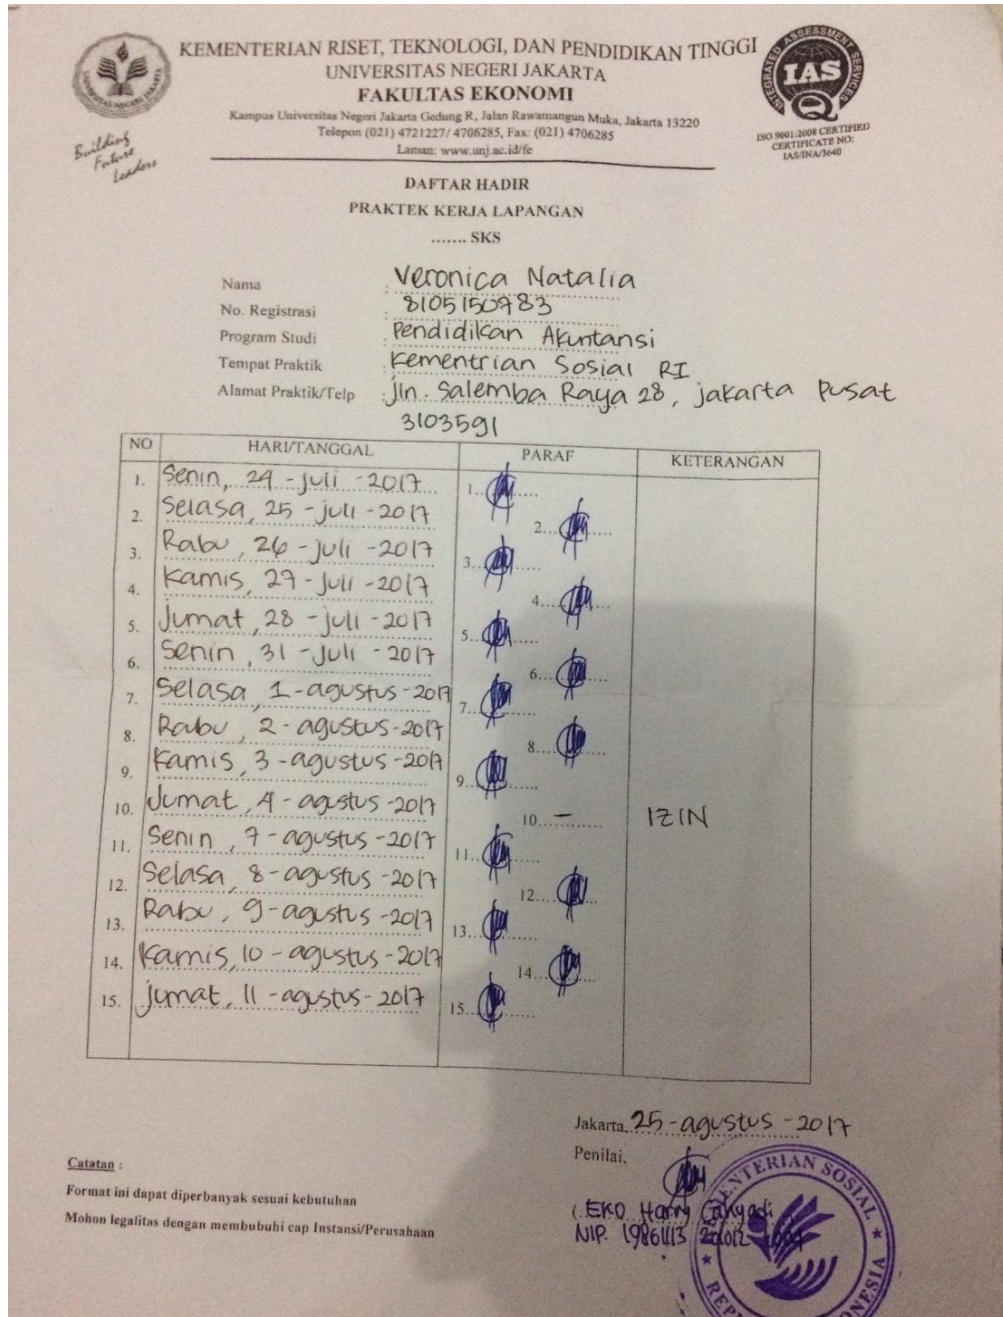 KEMENTERIAN RISET, TEKNOLOGI, DAN PENDIDIKAN TINGGI
UNIVERSITAS NEGERI JAKARTA
FAKULTAS EKONOMI
Kampus Universitas Negeri Jakarta Gedung R, Jalan Rawamangun Muka, Jakarta 13220
Telepon (021) 4721227/ 4706285, Fax: (021) 4706285
Laman: www.unj.ac.id/fe
UNIVERSITAS NEGERI JAKARTA
Building
Future
Leaders
INTEGRATED ASSESSMENT SERVICES
IAS
ISO 9001:2008 CERTIFIED
CERTIFICATE NO:
IAS/INA/3640
DAFTAR HADIR
PRAKTEK KERJA LAPANGAN
....... SKS
Nama : Veronica Natalia
No. Registrasi : 8105150983
Program Studi : Pendidikan Akuntansi
Tempat Praktik : Kementrian Sosial RI
Alamat Praktik/Telp : Jln. Salemba Raya 28, jakarta Pusat
3103591
NO HARI/TANGGAL PARAF KETERANGAN
1. Senin, 24 - juli - 2017 1.
2. Selasa, 25 - juli - 2017 2.
3. Rabu, 26 - juli - 2017 3.
4. Kamis, 27 - juli - 2017 4.
5. Jumat, 28 - juli - 2017 5.
6. Senin, 31 - juli - 2017 6.
7. Selasa, 1 - agustus - 2017 7.
8. Rabu, 2 - agustus - 2017 8.
9. Kamis, 3 - agustus - 2017 9.
10. Jumat, 4 - agustus - 2017 10. - IZIN
11. Senin, 7 - agustus - 2017 11.
12. Selasa, 8 - agustus - 2017 12.
13. Rabu, 9 - agustus - 2017 13.
14. Kamis, 10 - agustus - 2017 14.
15. jumat, 11 - agustus - 2017 15.
Jakarta, 25 - agustus - 2017
Penilai,
( EKO Harry Cahyadi
NIP. 19861113
KEMENTERIAN SOSIAL
REPUBLIK INDONESIA
Catatan :
Format ini dapat diperbanyak sesuai kebutuhan
Mohon legalitas dengan membubuhi cap Instansi/Perusahaan